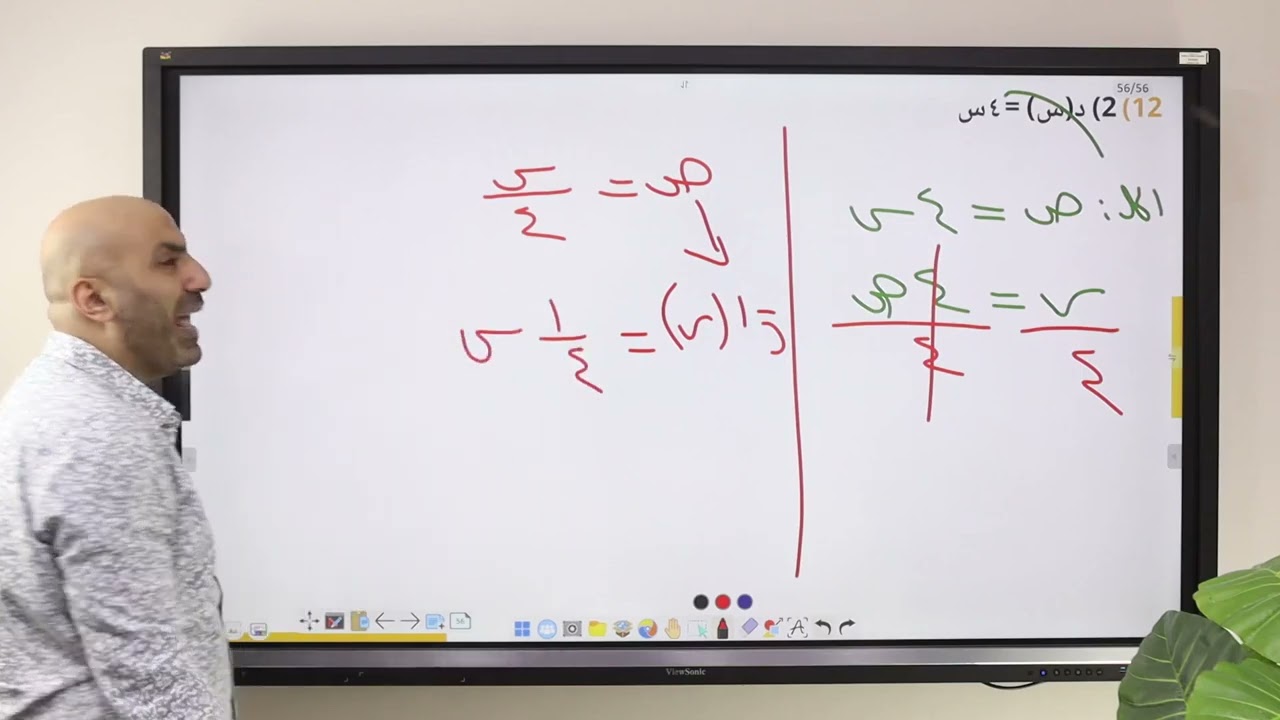 56/56
12) 2) د(س) = ٤ س
الحل: ص = ٤ س
س = ٤ ص
٤ ٤
ص = س
٤
د⁻¹(س) = ١ س
٤
56
ViewSonic